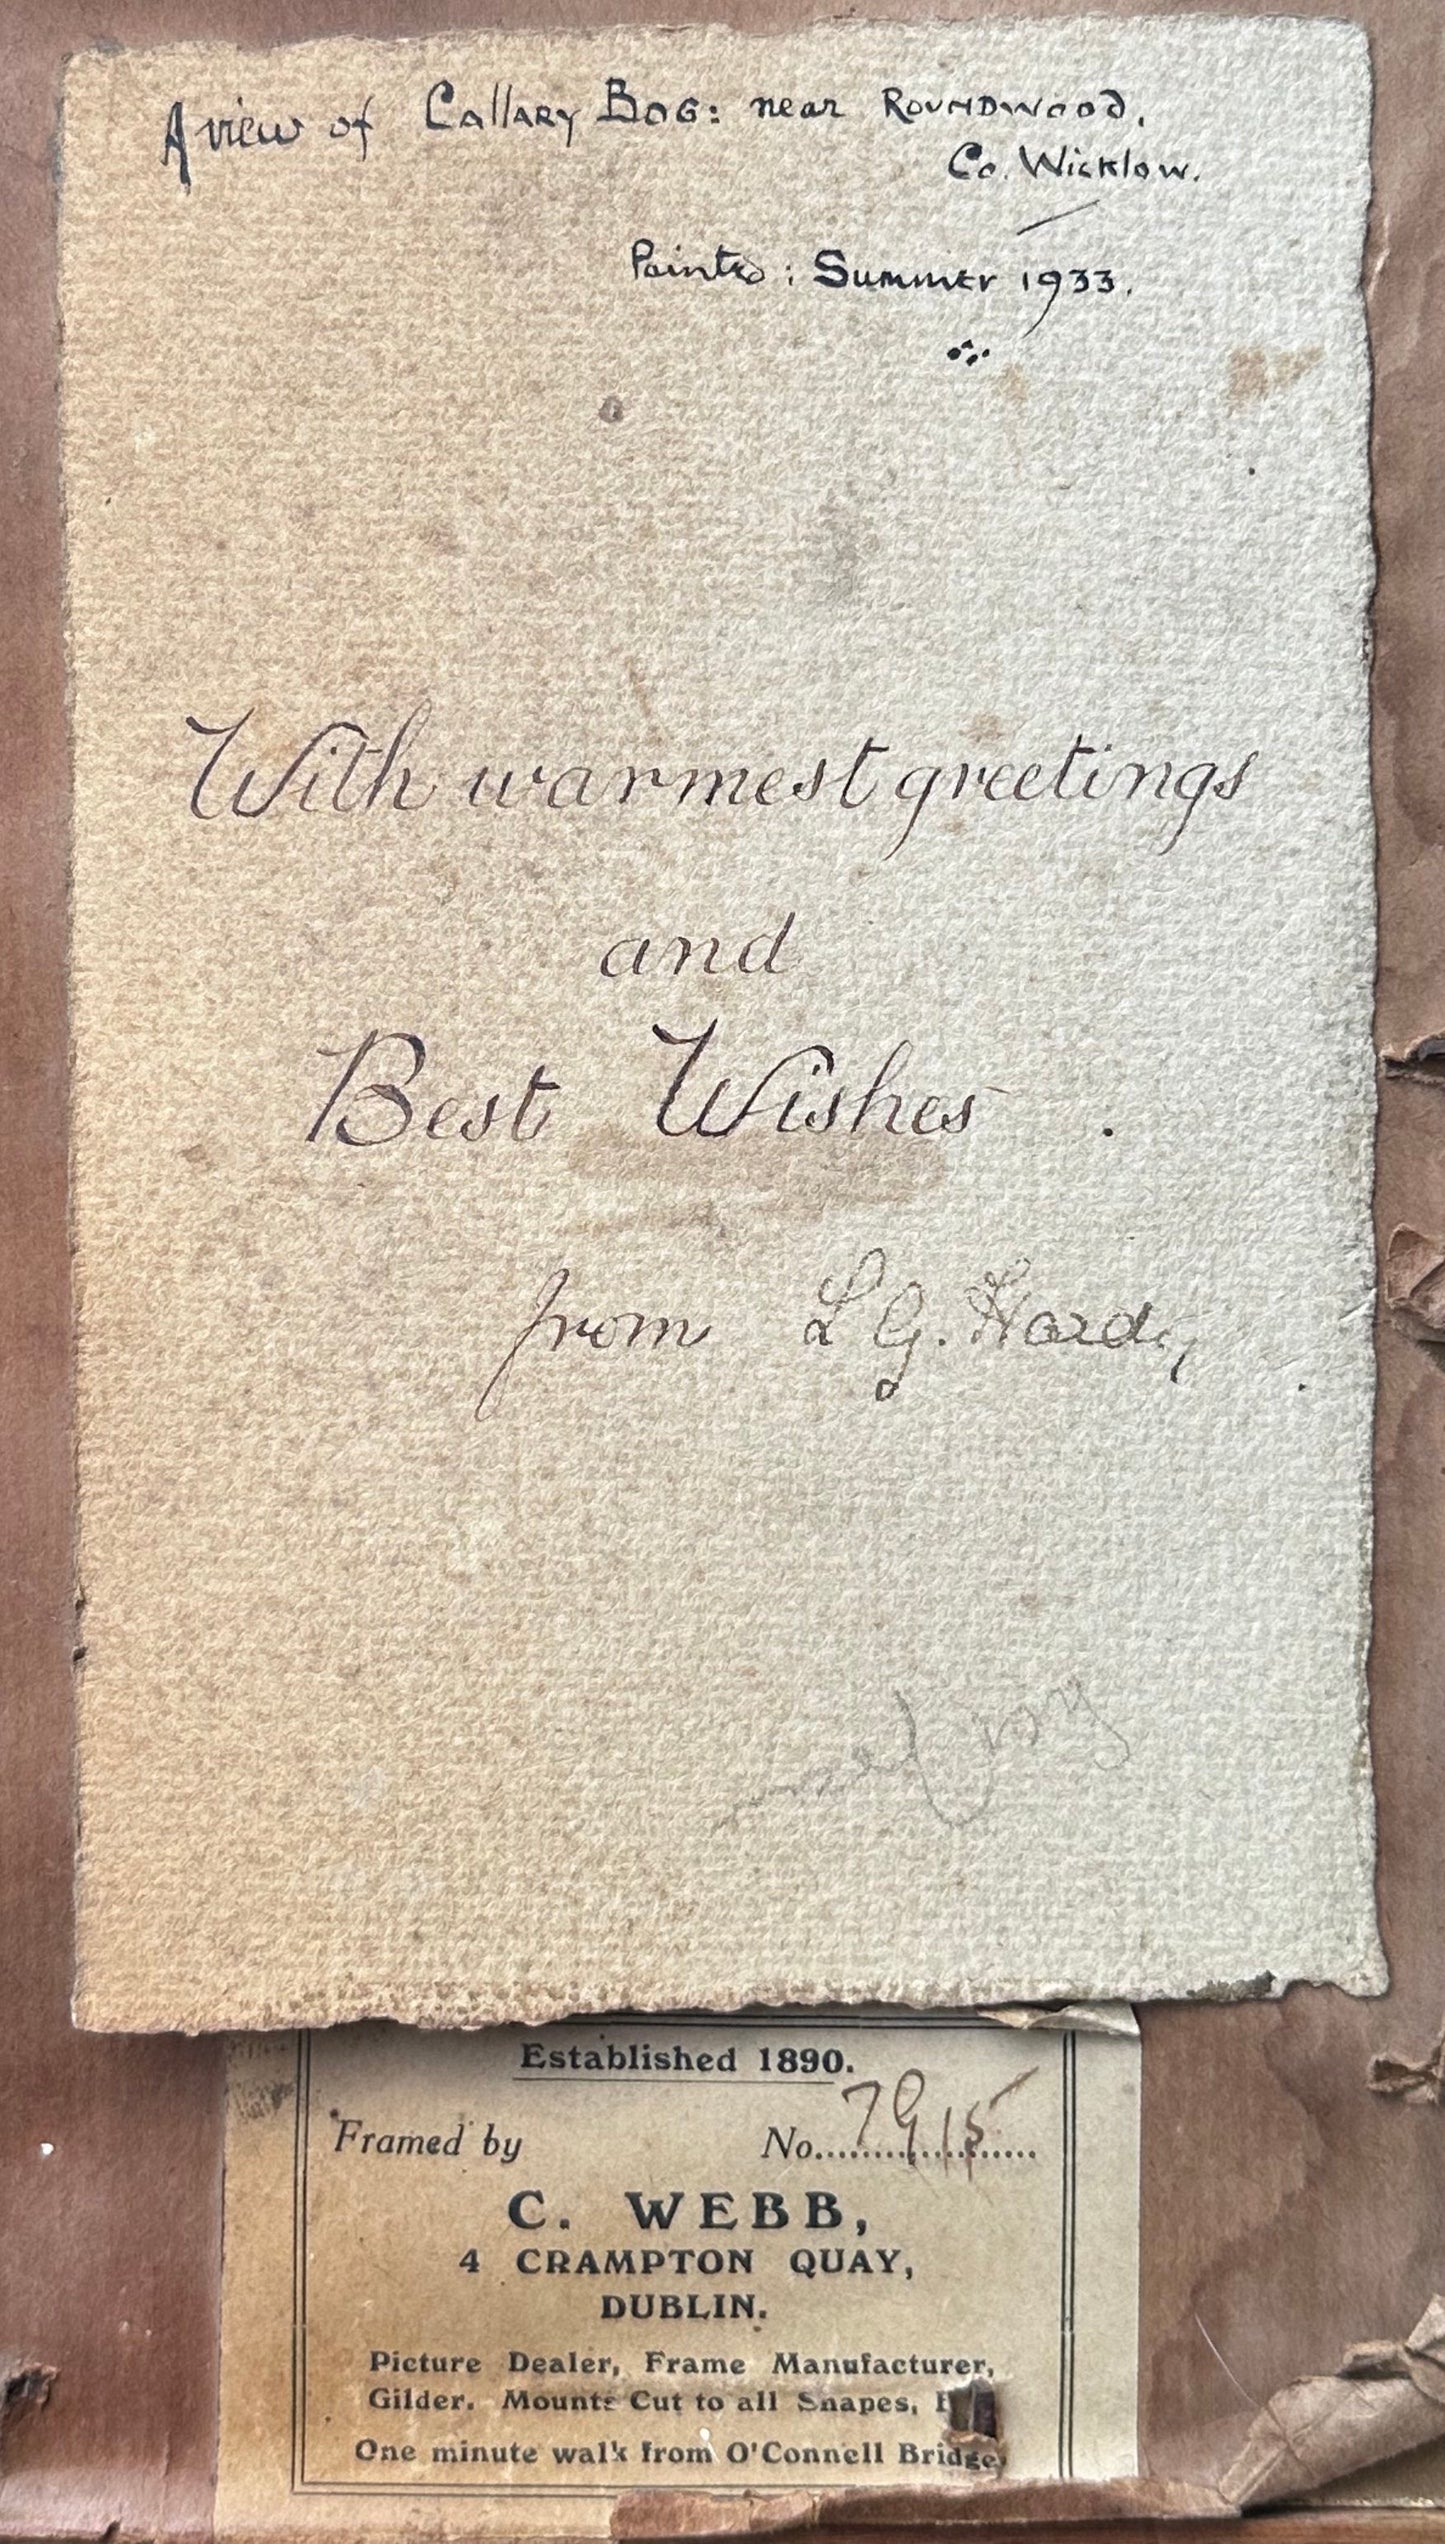 A view of Callary Bog: near Roundwood,
Co. Wicklow.
Painted: Summer 1933.
With warmest greetings
and
Best Wishes.
from L G. Hardy
Established 1890.
Framed by No. 7915
C. WEBB,
4 CRAMPTON QUAY,
DUBLIN.
Picture Dealer, Frame Manufacturer,
Gilder. Mounts Cut to all Shapes,
One minute walk from O'Connell Bridge.